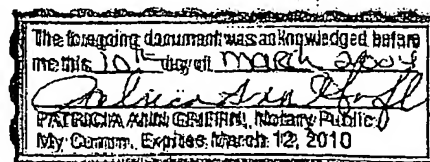 The foregoing document was acknowledged before
me this 10th day of March 2004
Patricia Ann Griffin
PATRICIA ANN GRIFFIN, Notary Public
My Comm. Expires March 12, 2010